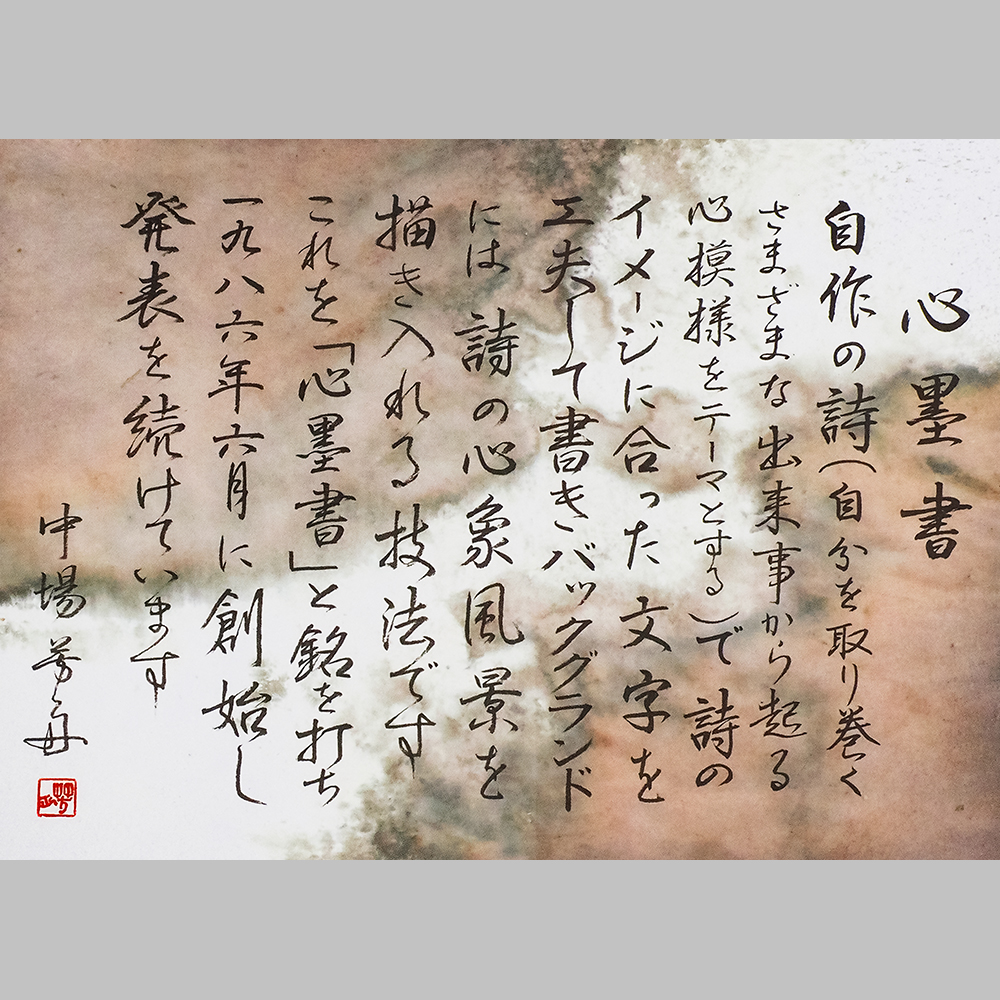 心墨書
自作の詩(自分を取り巻く
さまざまな出来事から起る
心模様をテーマとする)で詩の
イメージに合った文字を
工夫して書きバックグランド
には詩の心象風景を
描き入れる技法です
これを「心墨書」と銘を打ち
一九八六年六月に創始し
発表を続けています
中場